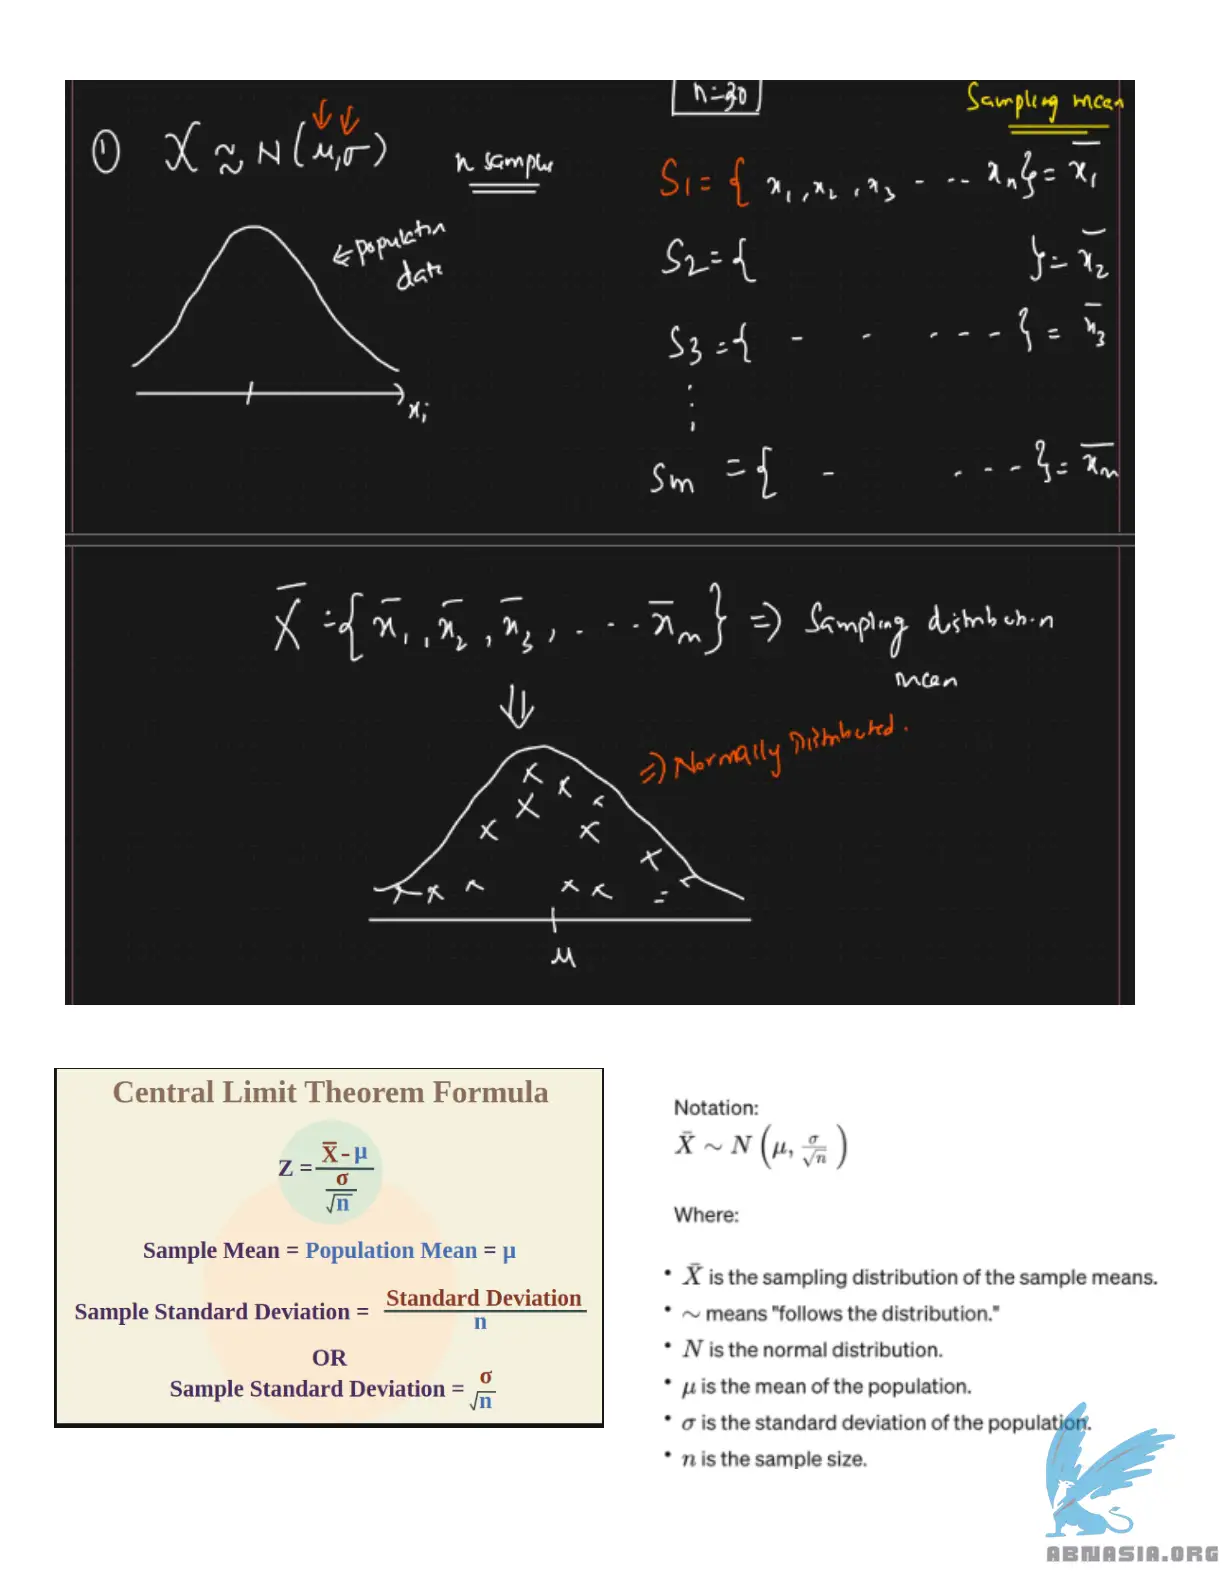 n=30
Sampling mean
① X ≈ N(μ,σ)
n sample
S1 = { x₁, x₂, x₃ - -- xₙ} = x̄₁
← population
data
S2 = { } = x̄₂
S3 = { - - - --- } = x̄₃
xᵢ
⋮
Sm = { - - - - } = x̄ₘ
X̄ = { x̄₁, x̄₂, x̄₃, . - - - x̄ₘ} ⇒ Sampling distribution
mean
⇓
⇒ Normally Distributed.
μ
Central Limit Theorem Formula
Z = (X̄ - μ) / (σ / √n)
Sample Mean = Population Mean = μ
Sample Standard Deviation = Standard Deviation / n
OR
Sample Standard Deviation = σ / √n
Notation:
X̄ ~ N (μ, σ/√n)
Where:
• X̄ is the sampling distribution of the sample means.
• ~ means "follows the distribution."
• N is the normal distribution.
• μ is the mean of the population.
• σ is the standard deviation of the population.
• n is the sample size.
ABNASIA.ORG